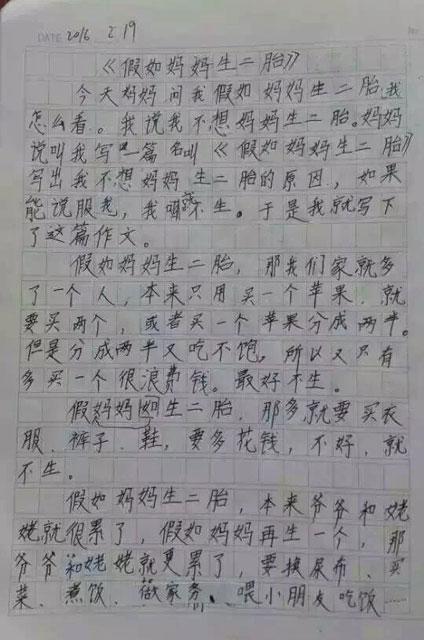 DATE 2016 2 19
《假如妈妈生二胎》
今天妈妈问我假如妈妈生二胎,我
怎么看。我说我不想妈妈生二胎。妈妈
说叫我写一篇名叫《假如妈妈生二胎》
写出我不想妈妈生二胎的原因,如果
能说服老,我就不生。于是我就写下
了这篇作文。
假如妈妈生二胎,那我们家就多
了一个人,本来只用买一个苹果,就
要买两个,或者买一个苹果分成两半。
但是分成两半又吃不饱,所以又只有
多买一个很浪费钱。最好不生。
假妈妈如生二胎,那多就要买衣
服、裤子、鞋,要多花钱,不好,就
不生。
假如妈妈生二胎,本来爷爷和姥
姥就很累了,假如妈妈再生一个,那
爷爷和姥姥就更累了,要换尿布、买
菜、煮饭、做家务、喂小朋友吃饭……